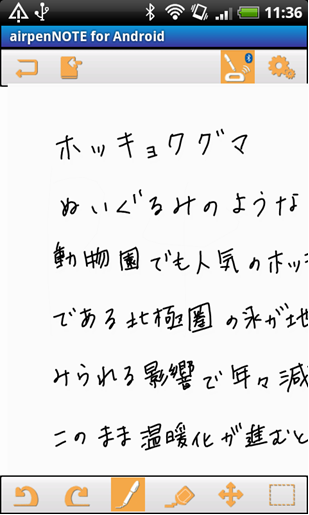 11:36
airpenNOTE for Android
ホッキョクグマ
ぬいぐるみのような
動物園でも人気のホッ
である北極圏の氷が地
みられる影響で年々減
このまま温暖化が進むと